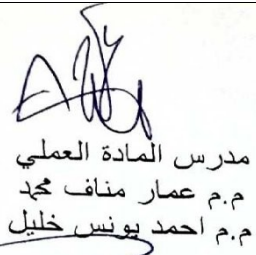 مدرس المادة العملي
م.م عمار مناف محمد
م.م احمد يونس خليل